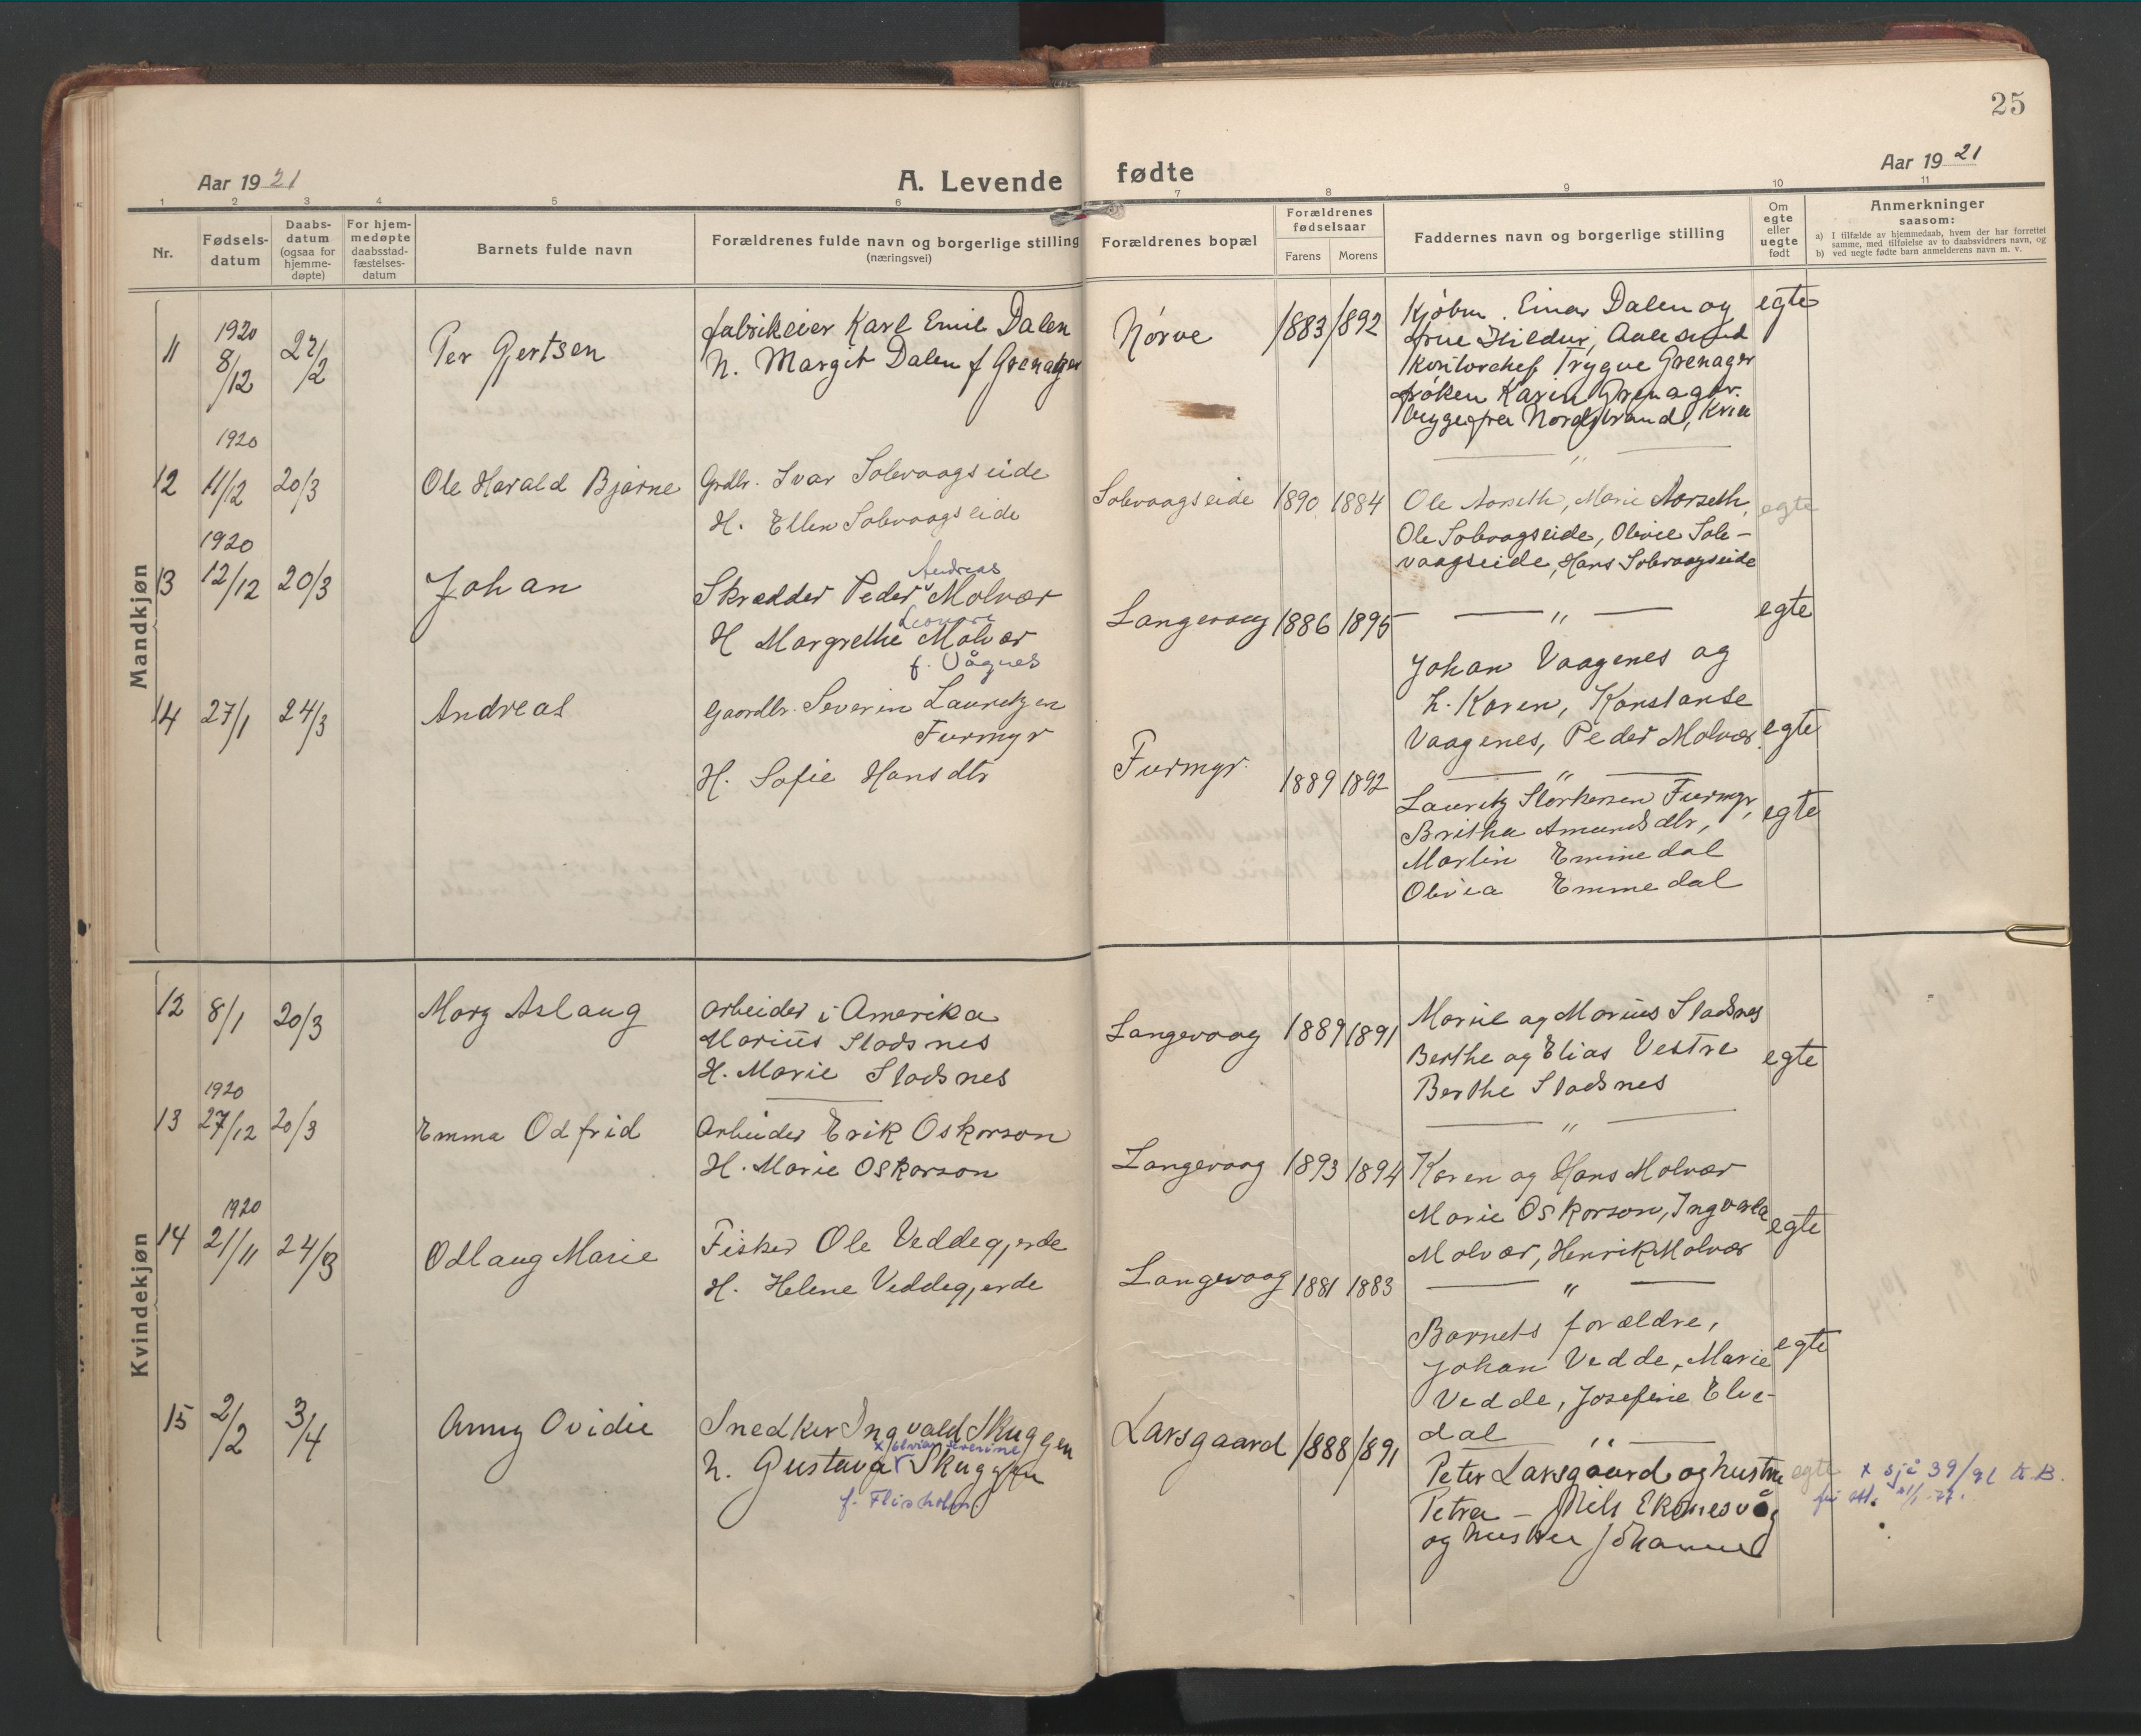 25
Aar 1921
A. Levende fødte
Aar 1921
1 2 3 4 5 6 7 8 9 10 11
Nr.
Fødsels-
datum
Daabs-
datum
(ogsaa for
hjemme-
døpte)
For hjem-
medøpte
daabsstad-
fæstelses-
datum
Barnets fulde navn
Forældrenes fulde navn og borgerlige stilling
(næringsvei)
Forældrenes bopæl
Forældrenes
fødselsaar
Farens Morens
Faddernes navn og borgerlige stilling
Om
egte
eller
uegte
født
Anmerkninger
saasom:
a) I tilfælde av hjemmedaab, hvem der har forrettet
samme, med tilføielse av to daabsvidners navn, og
b) ved uegte fødte barn anmelderens navn m. v.
Mandkjøn
11
1920
8/12
27/2
Per Gjertsen
fabrikeier Karl Emil Dalen
h. Margit Dalen f Grenager
Nørve
1883 1892
Kjøbm. Einar Dalen og
frue Hildur, Aalesund
Kontorchef Trygve Grenager
frøken Karin Grenager.
begge fra Nordstrand, Kria
egte
12
1920
11/12
20/3
Ole Harald Bjarne
Grdbr. Ivar Solevaagseide
H. Ellen Solevaagseide
Solevaagseide
1890 1884
Ole Aarseth, Marie Aarseth,
Ole Solevagseide, Olivie Sole-
vaagseide, Hans Solevaagseide
egte
— " —
13
1920
12/12
20/3
Johan
Andreas
Skrædder Peder ᵛ Molvær
Leonore
H Margrethe Molvær
f. Vågnes
Langevaag
1886 1895
Johan Vaagenes og
h. Karen, Konstanse
Vaagenes, Peder Molvær
egte
— " —
14
27/1
24/3
Andreas
Gaardbr. Severin Lauritzen
Furmyr
H. Sofie Hansdtr
Furmyr.
1889 1892
egte
Lauritz Storkersen Furmyr,
Britha Amundsdtr,
Martin Emmedal
Olivia Emmedal
egte
Kvindekjøn
12
8/1
20/3
Mary Aslaug
arbeider i Amerika
Marius Stadsnes
H. Marie Stadsnes
Langevaag
1889 1891
Marie og Marius Stadsnes
Berthe og Elias Vestre
Berthe Stadsnes
egte
— " —
13
1920
27/12
20/3
Emma Odfrid
Arbeider Erik Oskarson
H. Marie Oskarson
Langevaag
1893 1894
Karen og Hans Molvær
Marie Oskarson, Ingvarda
Molvær, Henrik Molvær
egte
— " —
14
1920
21/11
24/3
Odlaug Marie
Fisker Ole Veddegjerde
H. Helene Veddegjerde
Langevaag
1881 1883
Barnets forældre,
Johan Vedde, Marie
Vedde, Josefine Elve-
dal
egte
— " —
15
2/2
3/4
Anny Ovidie
Snedker Ingvald Skuggen
x Severine
h. Gustava Skuggen
f. Flisholm
Larsgaard
1888 1891
Peter Larsgaard og hustru
Petra – Nils Ekornesvåg
og hustru Johanne
egte
x sjå 39/91 K.B.